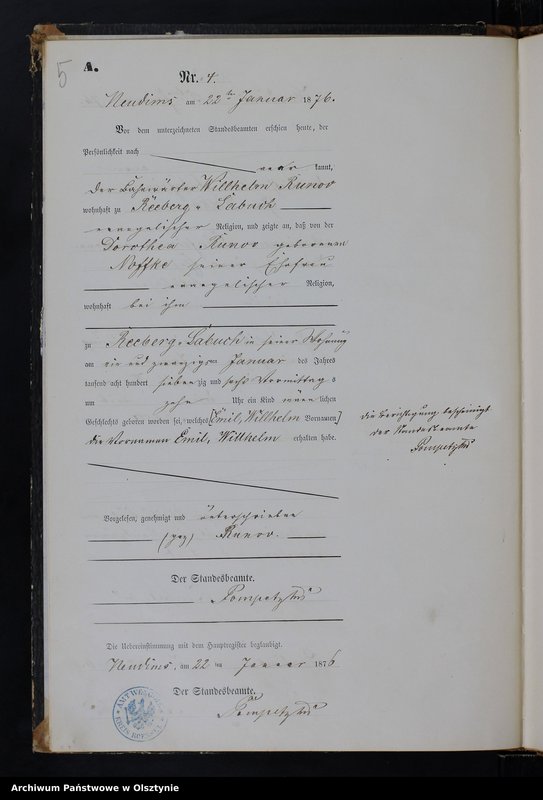 5
A.
Nr. 4.
Neudims am 22ten Januar 1876.
Vor dem unterzeichneten Standesbeamten erschien heute, der
Persönlichkeit nach
kannt,
der Bahnwärter Willhelm Runov
wohnhaft zu Reeberg Labuch
evangelischer Religion, und zeigte an, daß von der
Dorothea Runov geborenen
Noffke seiner Ehefrau
evangelischer Religion,
wohnhaft bei ihm
zu Reeberg Labuch in seiner Wohnung
am ein und zwanzigsten Januar des Jahres
tausend acht hundert sieben zig und sechs Vormittags
um zehn Uhr ein Kind männlichen
Geschlechts geboren worden sei, welches [Emil, Willhelm Vornamen]
die Vornamen Emil, Willhelm erhalten habe.
die Berichtigung bescheinigt
der Standesbeamte
Vorgelesen, genehmigt und unterschrieben
(gez) Runov.
Der Standesbeamte.
Die Uebereinstimmung mit dem Hauptregister beglaubigt.
Neudims, am 22 ten Januar 1876
Der Standesbeamte.
Archiwum Państwowe w Olsztynie